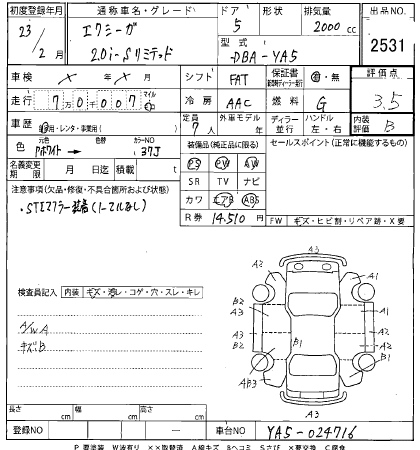 初度登録年月 通称車名・グレード ドア 形状 排気量 出品NO
23/2月 エクシーガ 5 2000cc 2531
2.0i-Sリミテッド 型式 DBA-YA5
車検 × 年 × 月 シフト FAT 保証書 有・無 評価点
走行 7万0007 マイル km 冷房 AAC 燃料 G 3.5
車歴 自家用・レンタ・事業用( ) 定員 7人 外車モデル 年 ディーラー 並行 ハンドル 左・右 内装評価 B
色 元色 色替 カラーNO 37J 装備品(純正品に限る) セールスポイント(正常に機能するもの)
名義変更期限 月 日迄 積載 t PS PW AW
注意事項(欠品・修復・不具合箇所および状態) SR TV ナビ
・STIマフラー装着(ノーマルなし) カワ エアB ABS
R券 14,510円 FW キズ・ヒビ割・リペア跡・X要
検査員記入 内装 キズ・汚レ・コゲ・穴・スレ・キレ
A/W A
キズ.B
A3
A2 A1
B2 A2
A3 A1
A3 A3
B2 B1 B2
A2 A2
AB3 A1
A3
長さ cm 幅 cm 高さ cm
登録NO — 車台NO YA5-024716
P 要塗装 W波有り ××取替済 A線キズ Bヘコミ Sさび ×要交換 C腐食